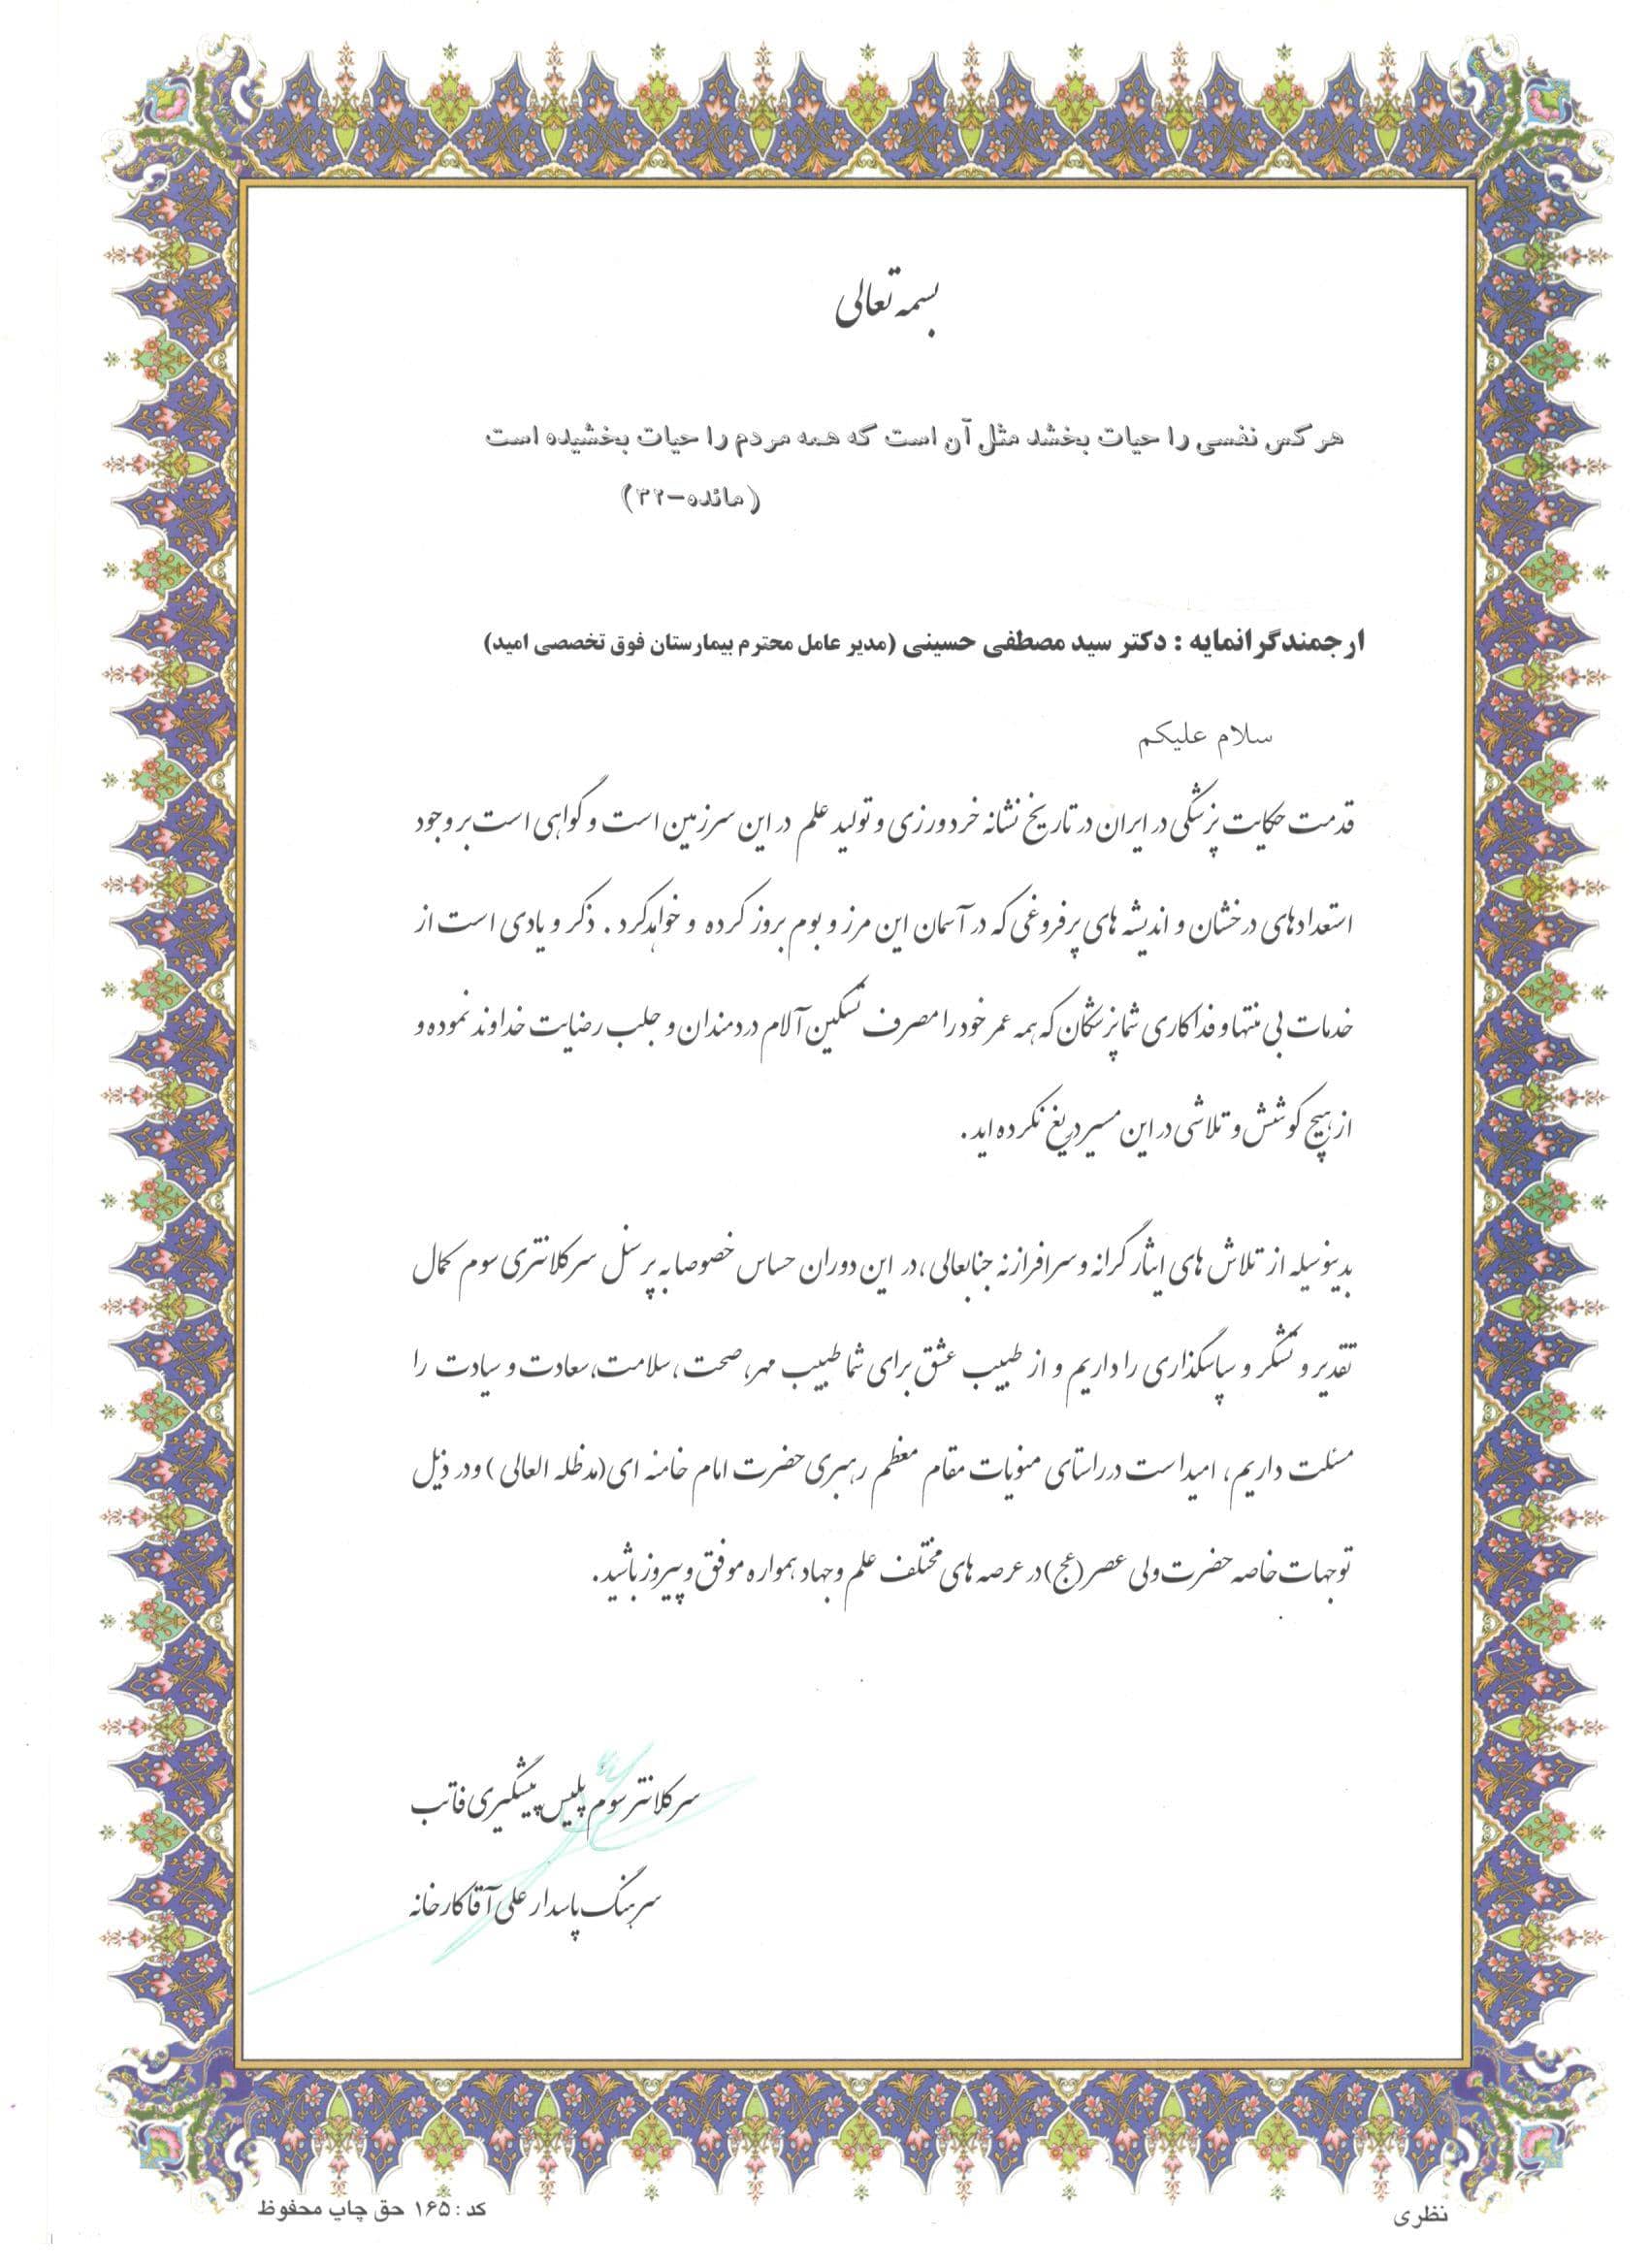 بسمه تعالی
هر کس نفسی را حیات بخشد مثل آن است که همه مردم را حیات بخشیده است
(مائده-۳۲)
ارجمند گرانمایه : دکتر سید مصطفی حسینی (مدیر عامل محترم بیمارستان فوق تخصصی امید)
سلام علیکم
قدمت حکایت پزشکی در ایران در تاریخ نشانه خردورزی و تولید علم در این سرزمین است و گواهی است بر وجود
استعدادهای درخشان و اندیشه های پرفروغی که در آسمان این مرز و بوم بروز کرده و خواهد کرد . ذکر و یادی است از
خدمات بی منتها و فداکاری شما پزشکان که همه عمر خود را مصرف تسکین آلام دردمندان و جلب رضایت خداوند نموده و
از هیچ کوشش و تلاشی در این مسیر دریغ نکرده اید .
بدینوسیله از تلاش های ایثار گرانه و سرافرازنه جنابعالی ، در این دوران حساس خصوصا به پرسنل سرکلانتری سوم کمال
تقدیر و تشکر و سپاسگذاری را داریم و از طبیب عشق برای شما طبیب مهر، صحت ، سلامت، سعادت و سیادت را
مسئلت داریم ، امید است در راستای منویات مقام معظم رهبری حضرت امام خامنه ای(مدظله العالی ) و در ذیل
توجهات خاصه حضرت ولی عصر(عج) در عرصه های مختلف علم و جهاد همواره موفق و پیروز باشید .
سرکلانتر سوم پلیس پیشگیری فاتب
سرهنگ پاسدار علی آقا کارخانه
نظری
کد : ۱۶۵ حق چاپ محفوظ